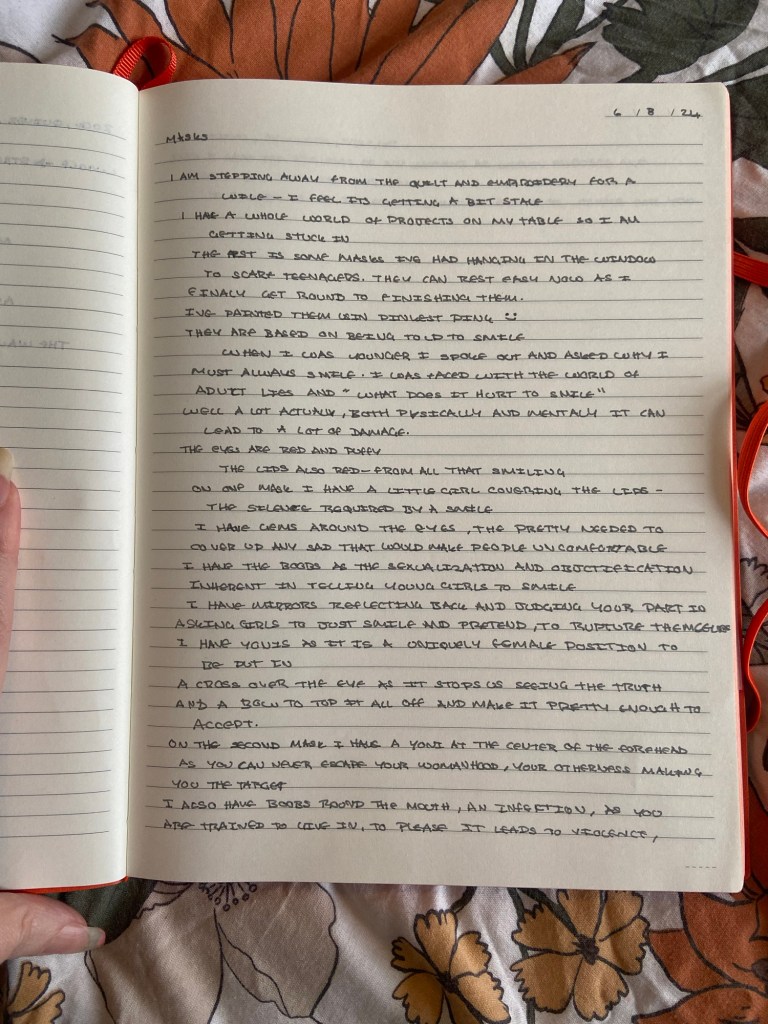 6 / 8 / 24
MASKS
I AM STEPPING AWAY FROM THE QUILT AND EMBROIDERY FOR A
WILE - I FEEL ITS GETTING A BIT STALE
I HAE A WHOLE WORLD OF PROJECTS ON MY TABLE SO I AM
GETTING STUCK IN
THE FRST IS SOME MASKS IVE HAD HANGING IN THE WINDOW
TO SCARE TEENAGERS. THEY CAN REST EASY NOW AS I
FINALY GET ROUND TO FINISHING THEM.
IVE PAINTED THEM PINK
THEY ARE BASED ON BEING TOLD TO SMILE
WHEN I WAS YOUNGER I SPOKE OUT AND ASKED WHY I
MUST ALWAYS SMILE. I WAS FACED WITH THE WORLD OF
ADULT LIES AND "WHAT DOES IT HURT TO SMILE"
WELL A LOT ACTUALY, BOTH PYSICALLY AND MENTALY IT CAN
LEAD TO A LOT OF DAMAGE.
THE EYES ARE RED AND PUFFY
THE LIPS ALSO RED - FROM ALL THAT SMILING
ON ONE MASK I HAVE A LITTLE GIRL COVERING THE LIPS -
THE SILENCE REQUIRED BY A SMILE
I HAVE GEMS AROUND THE EYES, THE PRETTY NEEDED TO
COVER UP ANY SAD THAT WOULD MAKE PEOPLE UNCOMFORTABLE
I HAVE THE BOOBS AS THE SEXUALIZATION AND OBJCTIFICATION
INHERENT IN TELLING YOUNG GIRLS TO SMILE
I HAVE MIRRORS REFLECTING BACK AND JUDGING YOUR PART IN
ASKING GIRLS TO JUST SMILE AND PRETEND, TO RUPTURE THEMSELVES
I HAVE YONIS AS IT IS A UNIQUELY FEMALE POSITION TO
BE PUT IN
A CROSS OVER THE EYE AS IT STOPS US SEEING THE TRUTH
AND A BOW TO TOP IT ALL OFF AND MAKE IT PRETTY ENOUGH TO
ACCEPT.
ON THE SECOND MASK I HAVE A YONI AT THE CENTER OF THE FOREHEAD
AS YOU CAN NEVER ESCAPE YOUR WOMANHOOD, YOUR OTHERNESS MAKING
YOU THE TARGET
I ALSO HAVE BOOBS ROUND THE MOUTH, AN INFECTION, AS YOU
ARE TRAINED TO GIVE IN, TO PLEASE IT LEADS TO VIOLENCE,